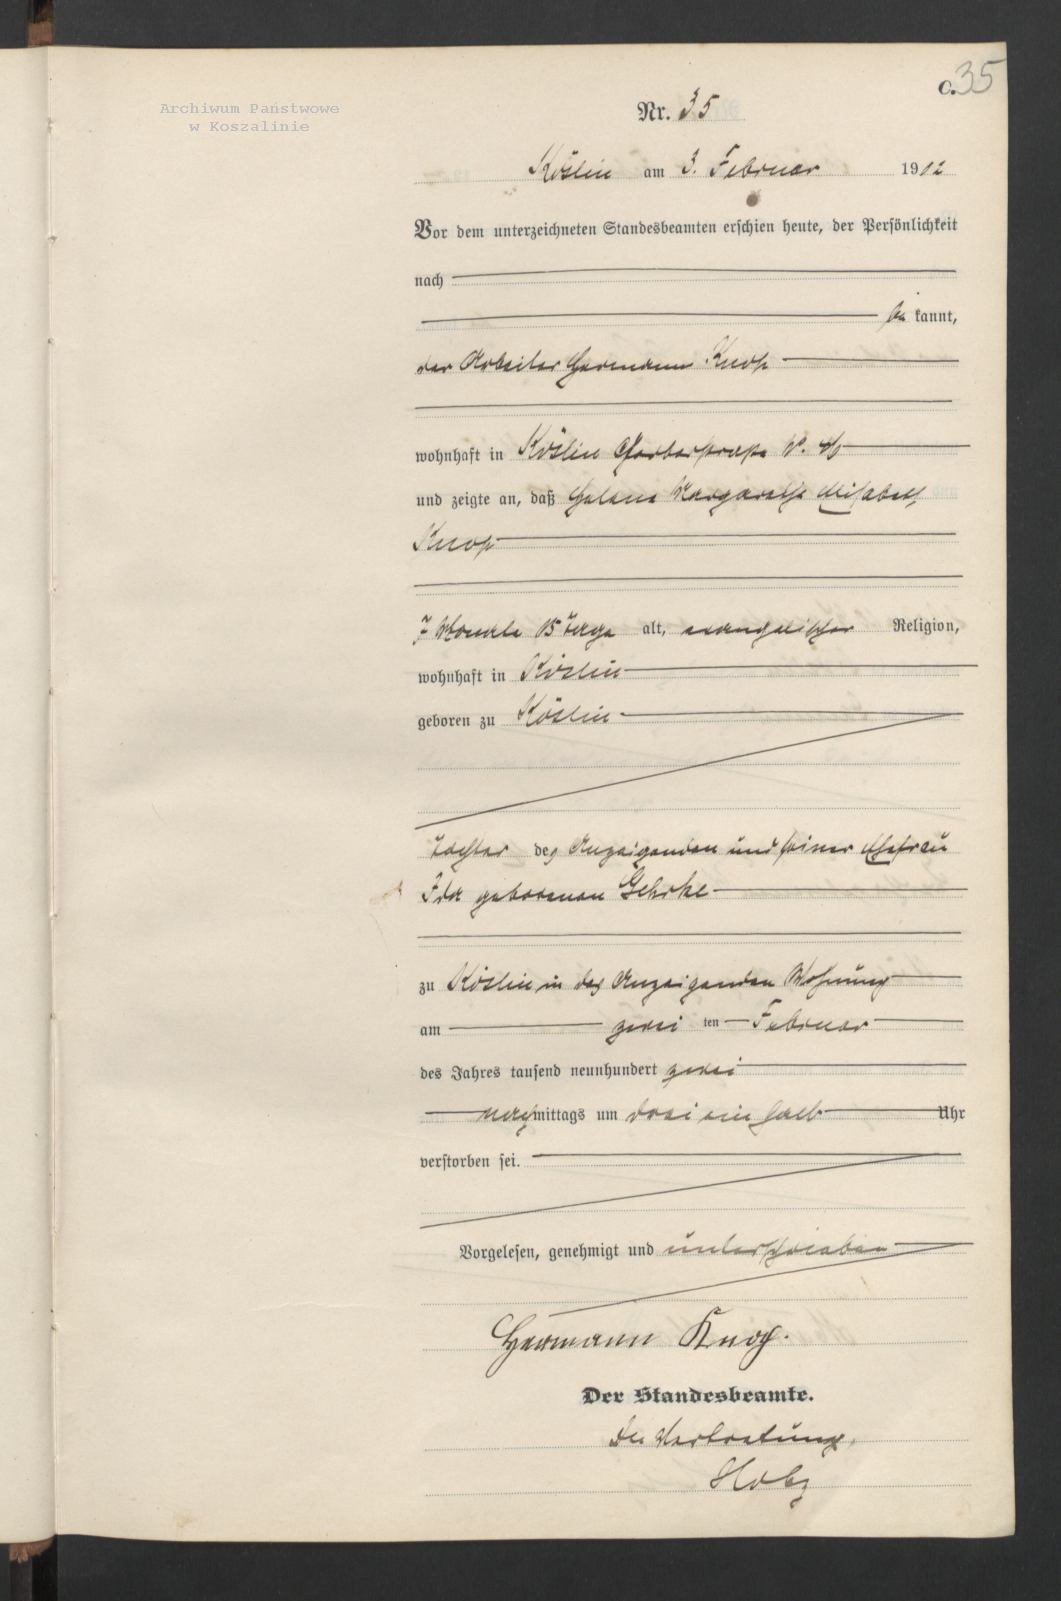 C.
35
Archiwum Państwowe
w Koszalinie
Nr. 35
Köslin am 3. Februar 1902
Vor dem unterzeichneten Standesbeamten erschien heute, der Persönlichkeit
nach
be kannt,
der Arbeiter Hermann Knop
wohnhaft in Köslin
und zeigte an, daß Helene Margarethe Elisabeth
Knop
7 Monate 15 Tage alt, evangelischer Religion,
wohnhaft in Köslin
geboren zu Köslin
Tochter des Anzeigenden und seiner Ehefrau
Ida geborenen Gehrke
zu Köslin in des Anzeigenden Wohnung
am zwei ten Februar
des Jahres tausend neunhundert zwei
nachmittags um drei ein halb Uhr
verstorben sei.
Vorgelesen, genehmigt und unterschrieben
Hermann Knop.
Der Standesbeamte.
In Vertretung.